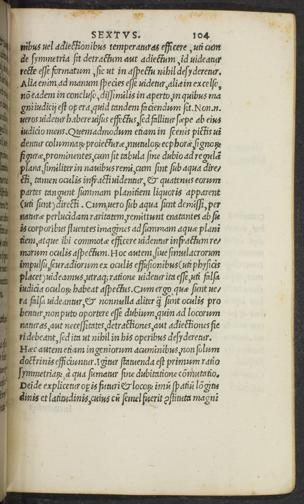 SEXTVS. 104
nibus uel adiectionibus temperaturas efficere, uti cum
de symmetria sit detractum aut adiectum, id uideatur
recte esse formatum, sic ut in aspectu nihil desyderetur.
Alia enim, ad manum species esse uidetur, alia in excelso,
nō eadem in concluso, dissimilis in aperto, in quibus ma
gni iudicij est opera, quid tandem faciendum sit. Non.n.
ueros uidetur habere uisus effectus, sed fallitur sæpe ab eius
iudicio mens. Quemadmodum etiam in scenis pictis ui
dentur columnarꝝ proiecturæ, mutulorꝝ ecphoræ, signorꝝ
figuræ, prominentes, cum sit tabula sine dubio ad regulā
plana, similiter in nauibus remi, cum sint sub aqua dire
cti, tamen oculis infracti uidentur, & quatenus eorum
partes tangunt summam planitiem liquoris apparent
(uti sunt) directi. Cum uero sub aqua sunt demissi, per
naturæ perlucidam raritatem, remittunt enatantes ab su
is corporibus fluentes imagines ad summam aquæ plani
tiem, atque ibi commotæ efficere uidentur infractum re
morum oculis aspectum. Hoc autem, siue simulacrorum
impulsu, seu radiorum ex oculis effusionibus (uti physicis
placet) uideamus, utraq; ratione uidetur ita esse, uti falsa
iudicia oculorꝝ habeat aspectus. Cum ergo quæ sunt ue
ra falsa uideantur, & nonnulla aliter q̄ sunt oculis pro
bentur, non puto oportere esse dubium, quin ad locorum
naturas, aut necessitates, detractiones, aut adiectiones fie
ri debeant, sed ita ut nihil in his operibus desyderetur.
Hæc autem etiam ingeniorum acuminibus, non solum
doctrinis efficiuntur. Igitur statuenda est primum ratio
symmetriarꝝ, à qua sumatur sine dubitatione cōmutatio.
Dei de explicetur opis futuri & locorꝝ imū spatiū lōgitu
dinis et latitudinis, cuius cū semel fuerit cōstituta magni